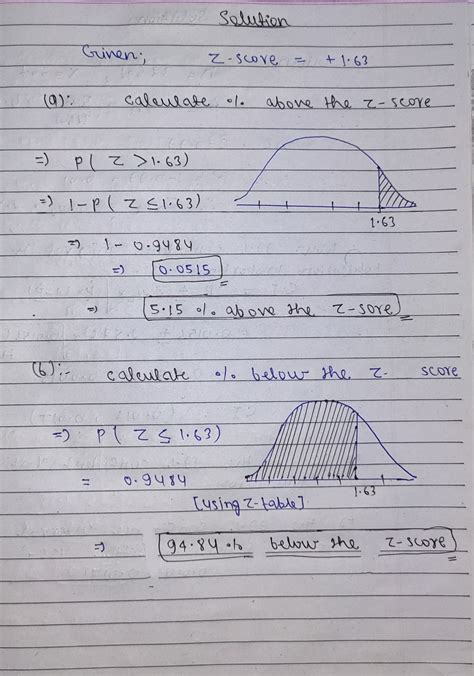 Solution
Given; Z-score = +1.63
(a):- calculate % above the z-score
=) P( Z >1.63)
=) 1-P( Z ≤ 1.63)
1.63
=) 1- 0.9484
=) 0.0515
=) 5.15 % above the z-sore
(b):- calculate % below the z- score
=) P( Z ≤ 1.63)
= 0.9484
1.63
[using z-table]
=) 94.84 % below the z-score